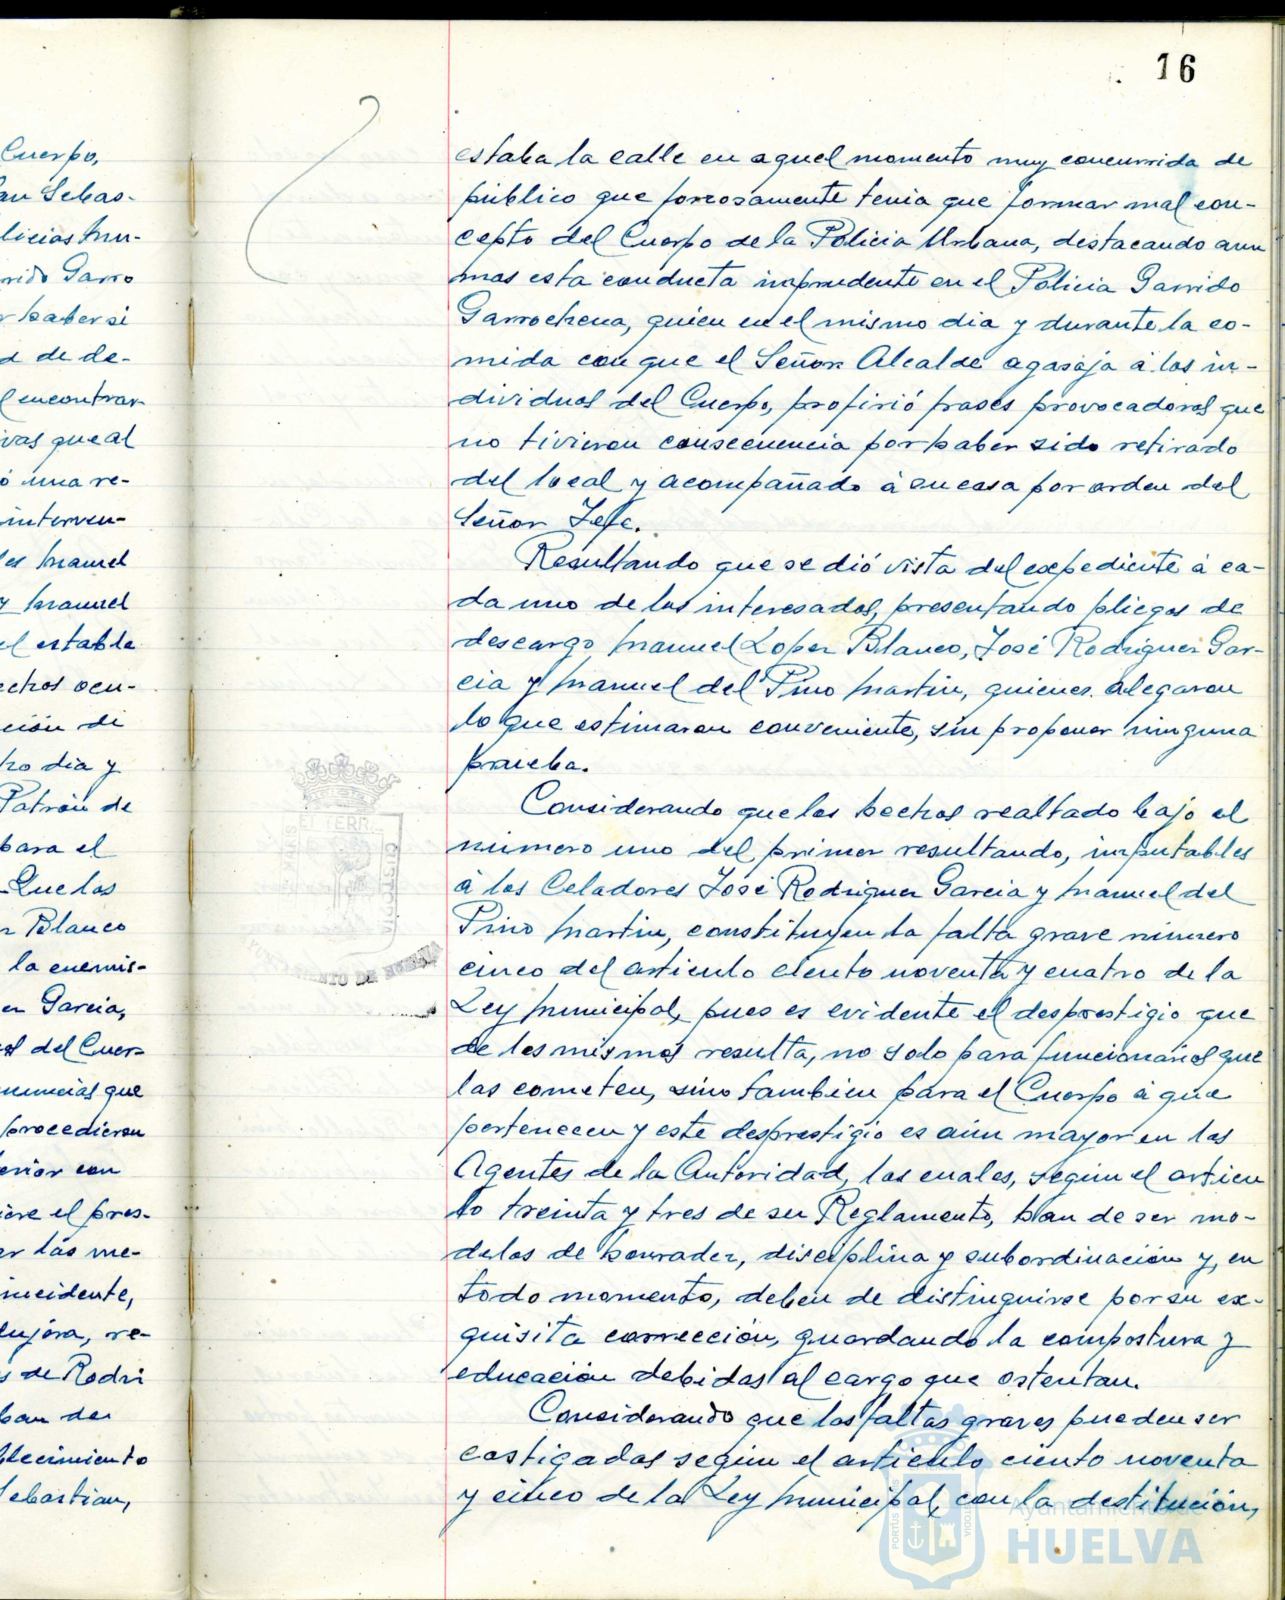 16
Cuerpo,
an Sebas-
licias Mu-
rrido Garro
r haber si
d de de-
l encontrar
ivas que al
ó una re-
interven-
les Manuel
y Manuel
el estable
echos ocu-
ción di
ho dia y
Patrón de
para el
Que los
r Blanco
la enemis-
en Garcia,
al del Cuer-
nuncias que
procedieron
erior con
iere el pres-
er las me-
incidente,
dujera, re-
s de Rodri
ban de
blecimiento
Sebastian,
estaba la calle en aquel momento muy concurrida de
público que forzosamente tenia que formar mal con-
cepto del Cuerpo de la Policia Urbana, destacando aun
mas esta conducta imprudente en el Policia Garrido
Garrochena, quien en el mismo dia y durante la co-
mida con que el Señor Alcalde agasaja á los in-
dividuos del Cuerpo, profirió frases provocadoras que
no tivieron consecuencia por haber sido retirado
del local y acompañado á su casa por orden del
Señor Jefe.
Resultando que se dió vista del expediente á ca-
da uno de los interesados, presentando pliegos de
descargo Manuel Lopez Blanco, José Rodriguez Gar-
cia y Manuel del Pino Martin, quienes alegaron
lo que estimaron conveniente, sin proponer ninguna
prueba.
Considerando que los hechos realtado bajo el
número uno del primer resultando, imputables
á los Celadores José Rodriguez Garcia y Manuel del
Pino Martin, constituyen la falta grave número
cinco del articulo ciento noventa y cuatro de la
Ley Municipal, pues es evidente el desprestigio que
de los mismos resulta, no solo para funcionarios que
las cometen, sino tambien para el Cuerpo á que
pertenecen y este desprestigio es aún mayor en los
Agentes de la Autoridad, los cuales, según el articu
lo treinta y tres de su Reglamento, han de ser mo-
delos de honradez, disciplina y subordinación y, en
todo momento, deben de distinguirse por su ex-
quisita corrección, guardando la compostura y
educación debidas al cargo que ostentan.
Considerando que las faltas graves pueden ser
castigadas según el articulo ciento noventa
y cinco de la Ley Municipal, con la destitución,
Ayuntamiento de
HUELVA